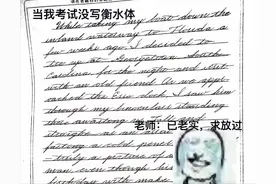 当我考试没写衡水体
While taking my boat down the
inland waterway to Florida a
few weeks ago I decided to
tie up at Georgetown South
Carolina for the night and
with an old friend. As we app
roached the Esso dock I saw him
through my binoculars standing
there awaiting us. Tall and
straight as an
老师：已老实，求放过
a cold pencil
truly a picture of a
man even though his
birthday with make